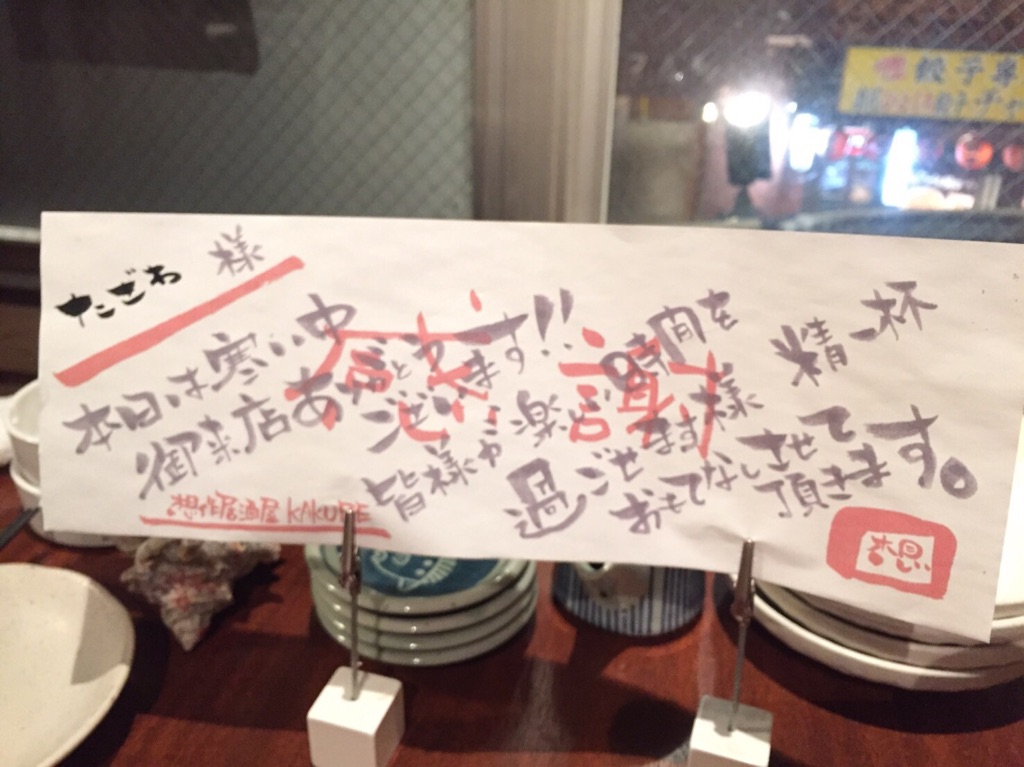 たざわ 様
本日は寒い中
御来店ありがとう
ございます!!
皆様が楽しい時間を
過ごせます様 精一杯
おもてなしさせて
頂きます。
感謝
想作居酒屋 KAKURE
想
餃子専